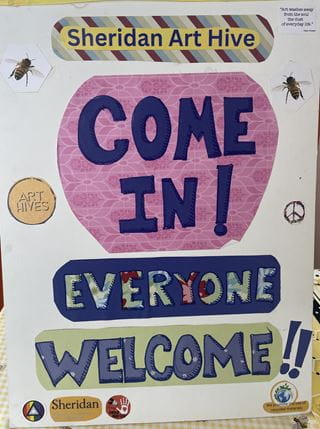 Sheridan Art Hive
"Art washes away
from the soul
the dust
of everyday life."
COME
IN!
ART
HIVES
EVERYONE
WELCOME!!
Sheridan